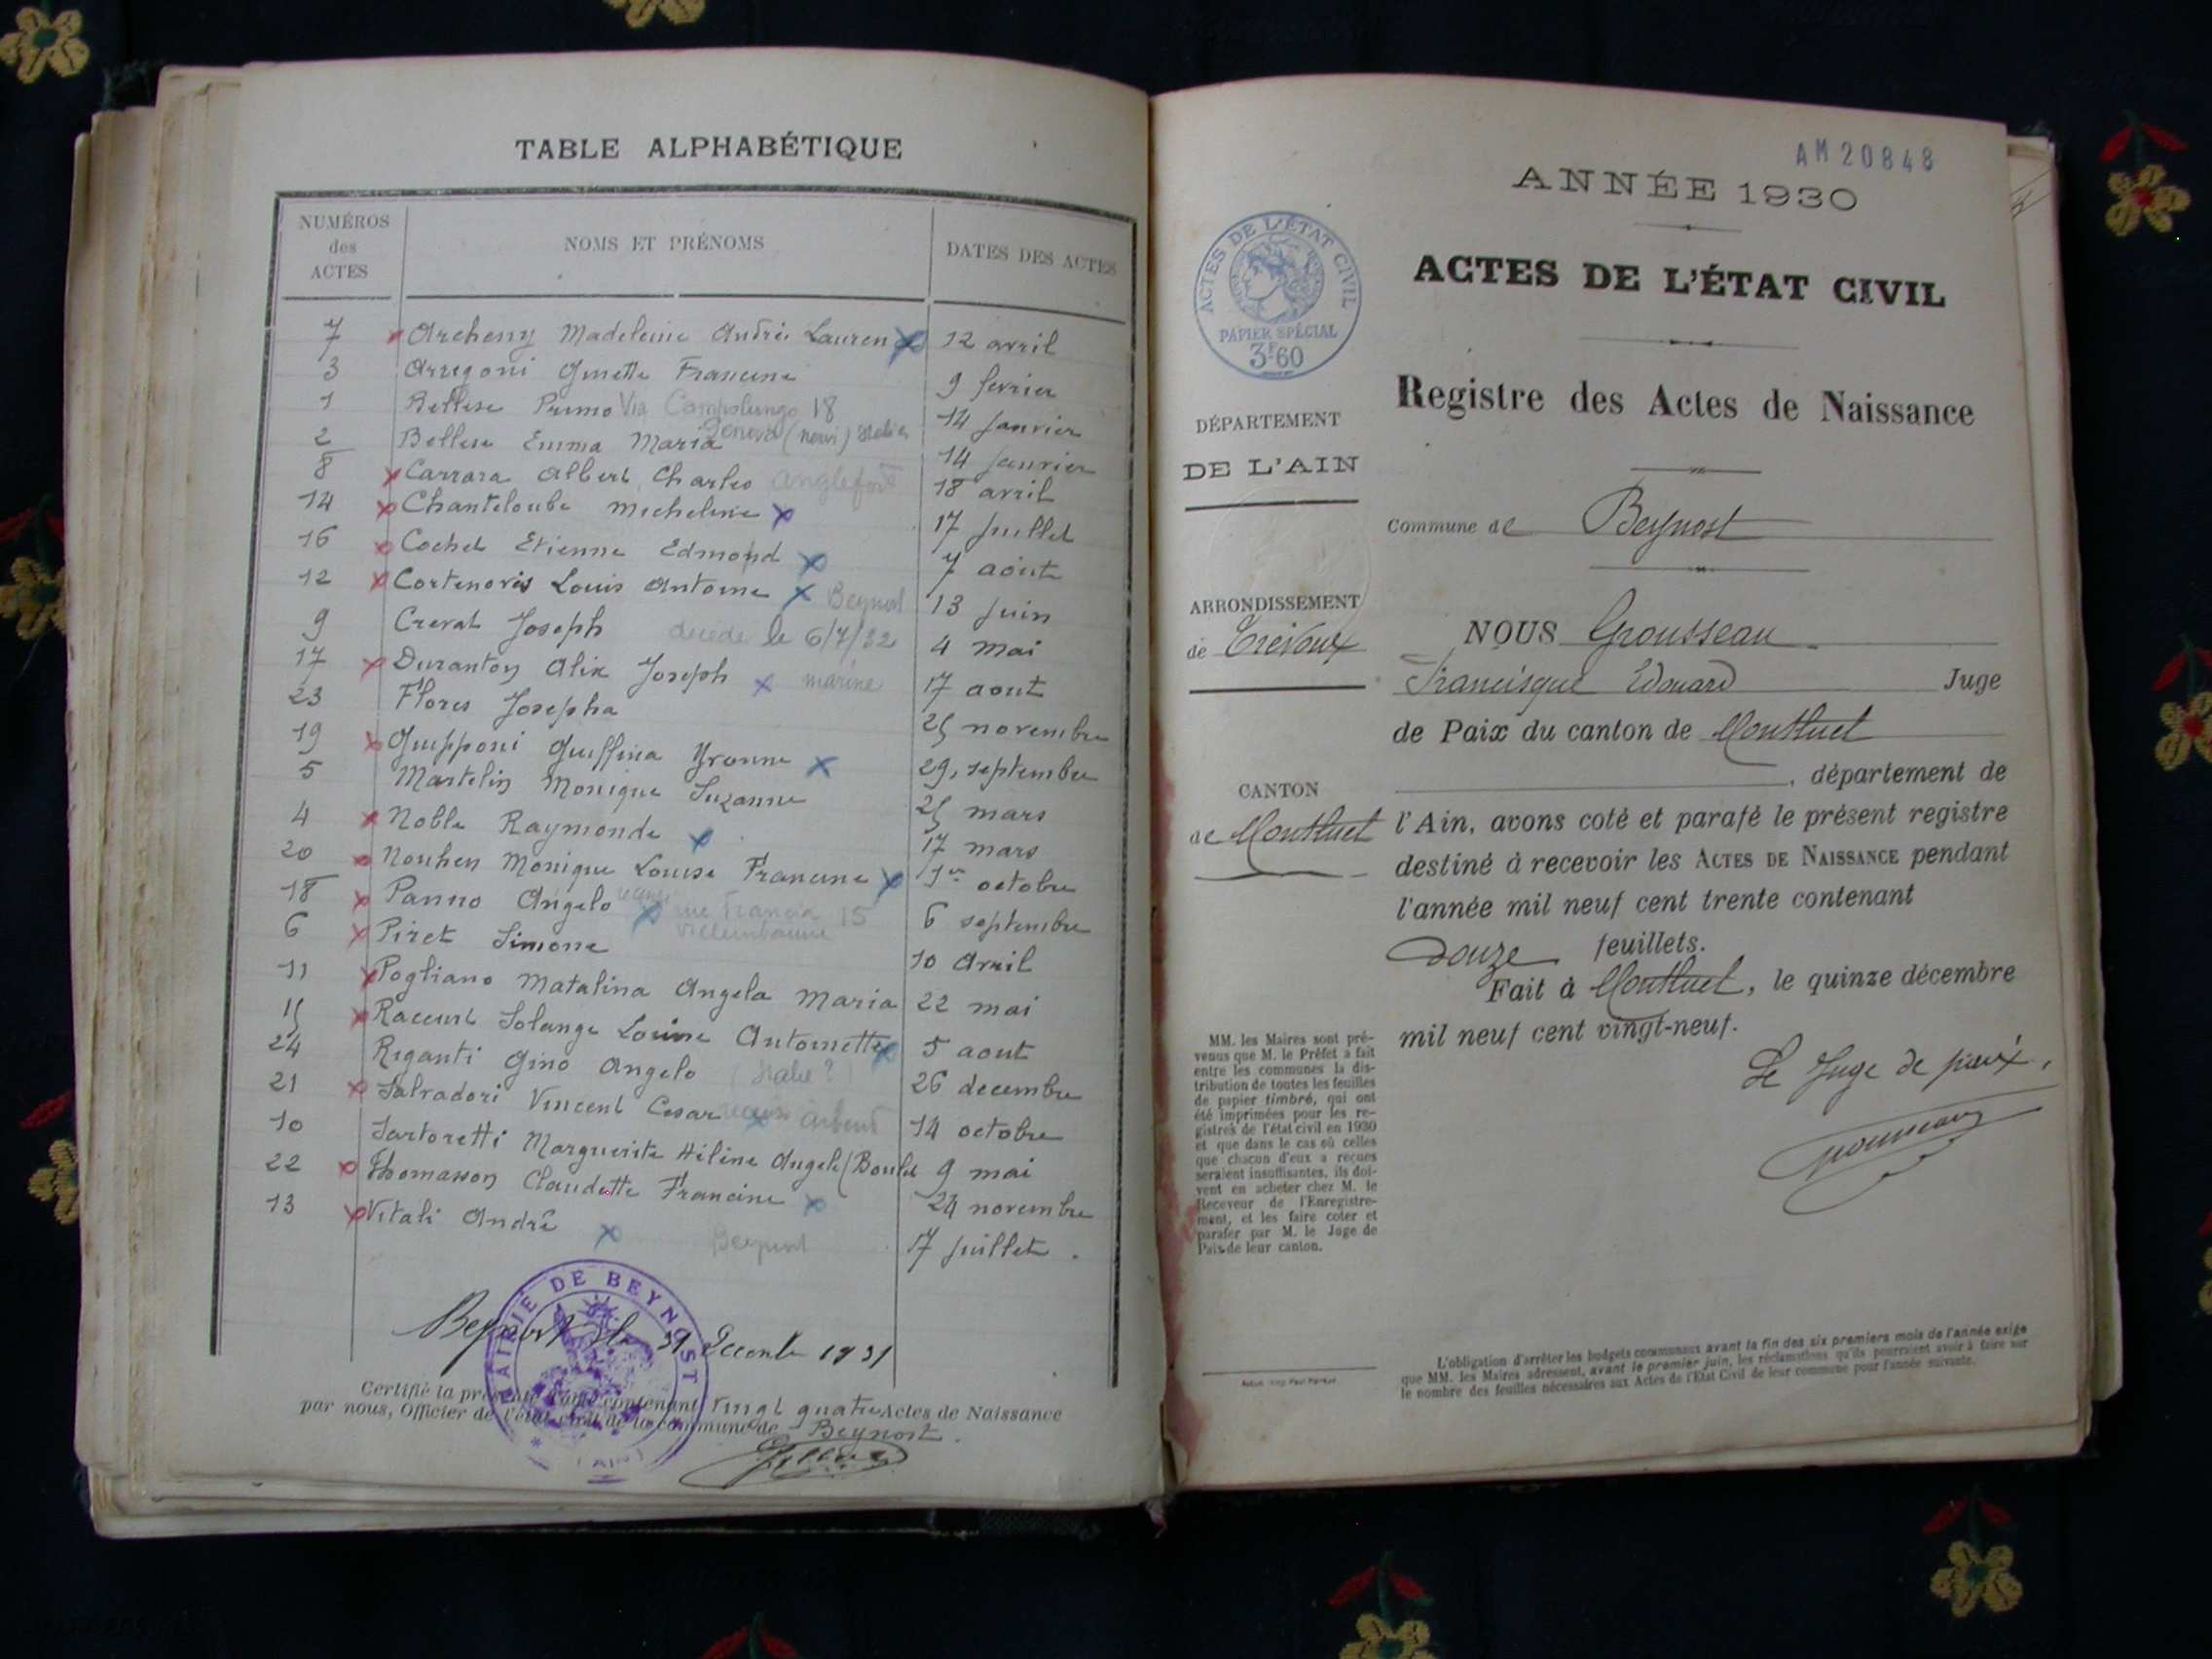 TABLE ALPHABÉTIQUE
NUMÉROS des ACTES
NOMS ET PRÉNOMS
DATES DES ACTES
7 Archeny Madeleine Andrée Lauren 12 avril
3 Arregoni Ginette Francine 9 fevrier
1 Bellese Primo Via Campolungo 18 14 Janvier
Genova (Nervi) Italie
2 Bellese Emma Maria 14 Janvier
8 Carrara Albert Charles Anglefort 18 avril
14 Chanteloube Micheline 17 Juillet
16 Cochet Etienne Edmond 7 août
12 Cortenovis Louis Antoine Beynost 13 Juin
9 Crevat Joseph décédé le 6/7/32 4 Mai
17 Duranton Alix Joseph marine 17 aout
23 Flores Josepha 25 novembre
19 Guipponi Guiffina Yvonne 29 septembre
5 Martelin Monique Suzanne 25 mars
4 Noble Raymonde 17 mars
20 Nouhen Monique Louise Francine 1er octobre
18 Panno Angelo rue Francia 15 6 septembre
Villeurbanne
6 Piret Simone 10 Avril
11 Pogliano Matalina Angela Maria 22 mai
15 Solange Louise Antoinette 5 aout
24 Riganti Gino Angelo (Italie ?) 26 decembre
21 Salvadori Vincent Cesar 14 octobre
10 Sartoretti Marguerite Hélène Angele (Boulet 9 mai
22 Thomasson Claudette Francine 24 novembre
13 Vitali André Beynost 17 Juillet .
Beynost le 31 Decembre 1931
MAIRIE DE BEYNOST
(AIN)
Certifié la présente Table contenant vingt quatre Actes de Naissance
par nous, Officier de l'état civil de la commune de Beynost.
AM20848
ANNÉE 1930
ACTES DE L'ÉTAT CIVIL
PAPIER SPÉCIAL
3F.60
ACTES DE L'ÉTAT CIVIL
Registre des Actes de Naissance
DÉPARTEMENT
DE L'AIN
Commune de Beynost
ARRONDISSEMENT
de Trévoux
CANTON
de Montluel
NOUS Grousseau
Francisque Edouard Juge
de Paix du canton de Montluel
, département de
l'Ain, avons coté et parafé le présent registre
destiné à recevoir les ACTES DE NAISSANCE pendant
l'année mil neuf cent trente contenant
Douze feuillets.
Fait à Montluel, le quinze décembre
mil neuf cent vingt-neuf.
Le Juge de paix,
MM. les Maires sont pré-
venus que M. le Préfet a fait
entre les communes la dis-
tribution de toutes les feuilles
de papier timbré, qui ont
été imprimées pour les re-
gistres de l'état civil en 1930
et que dans le cas où celles
que chacun d'eux a reçues
seraient insuffisantes, ils doi-
vent en acheter chez M. le
Receveur de l'Enregistre-
ment, et les faire coter et
parafer par M. le Juge de
Paix de leur canton.
L'obligation d'arrêter les budgets communaux avant la fin des six premiers mois de l'année exige
que MM. les Maires adressent, avant le premier juin, les réclamations qu'ils pourraient avoir à faire sur
le nombre des feuilles nécessaires aux Actes de l'Etat Civil de leur commune pour l'année suivante.